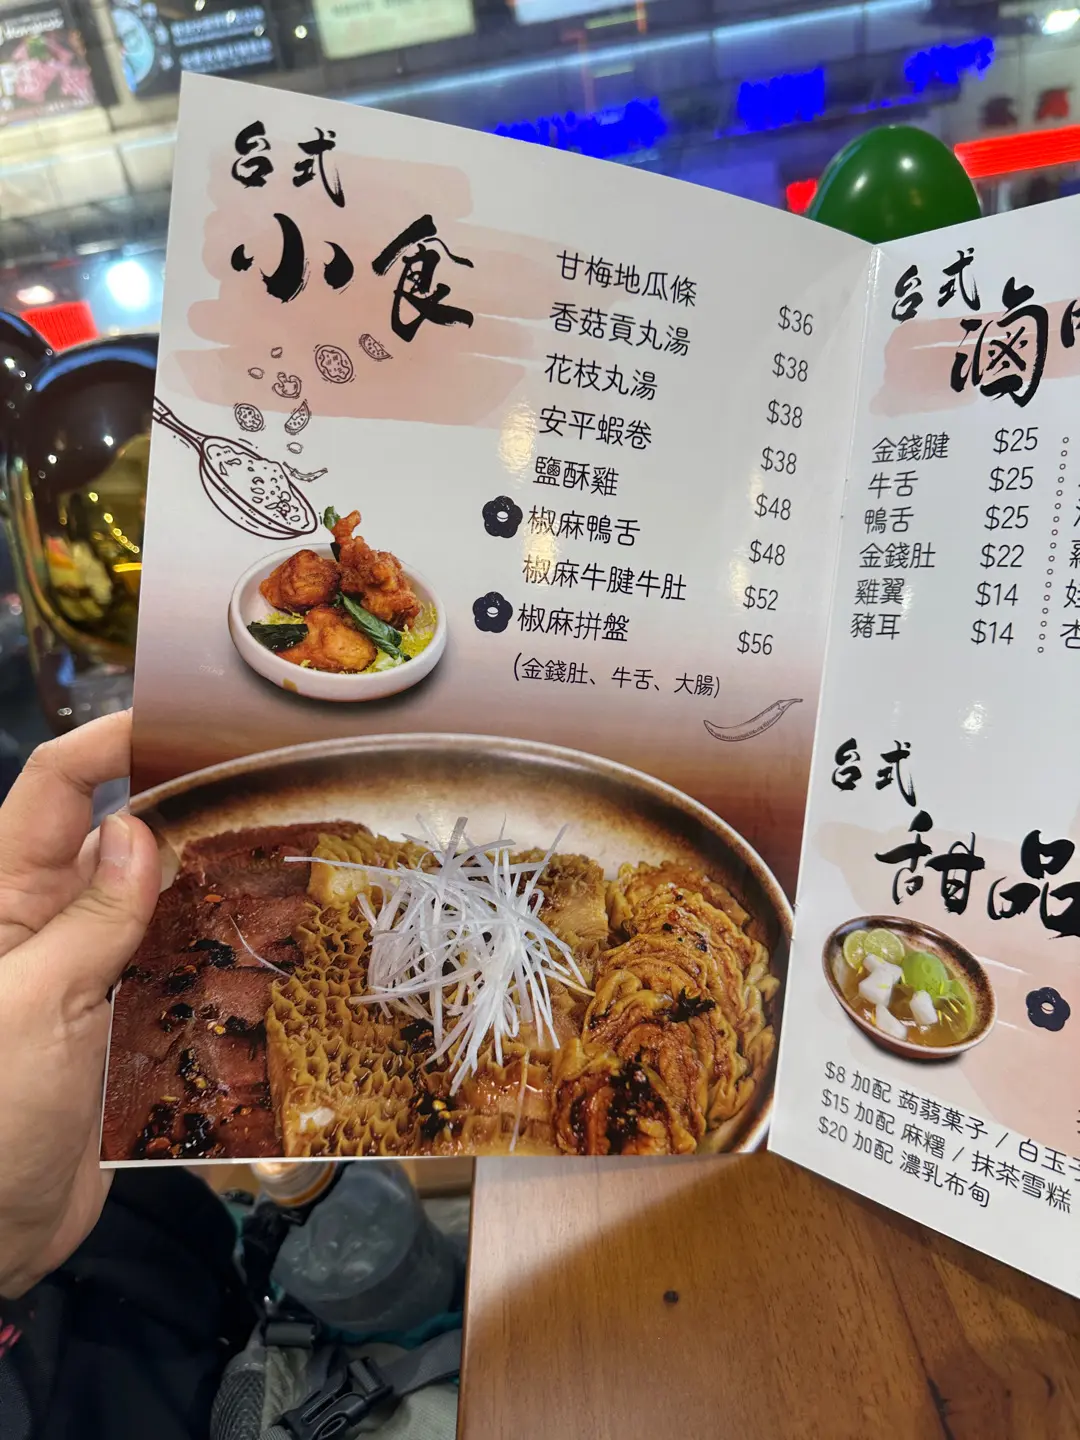 台式
小食
甘梅地瓜條 $36
香菇貢丸湯 $38
花枝丸湯 $38
安平蝦卷 $38
鹽酥雞 $48
椒麻鴨舌 $48
椒麻牛腱牛肚 $52
椒麻拼盤 $56
(金錢肚、牛舌、大腸)
台式
滷
金錢腱 $25
牛舌 $25
鴨舌 $25
金錢肚 $22
雞翼 $14
豬耳 $14
台式
甜品
$8 加配 蒟蒻菓子 / 白玉子
$15 加配 麻糬 / 抹茶雪糕
$20 加配 濃乳布甸